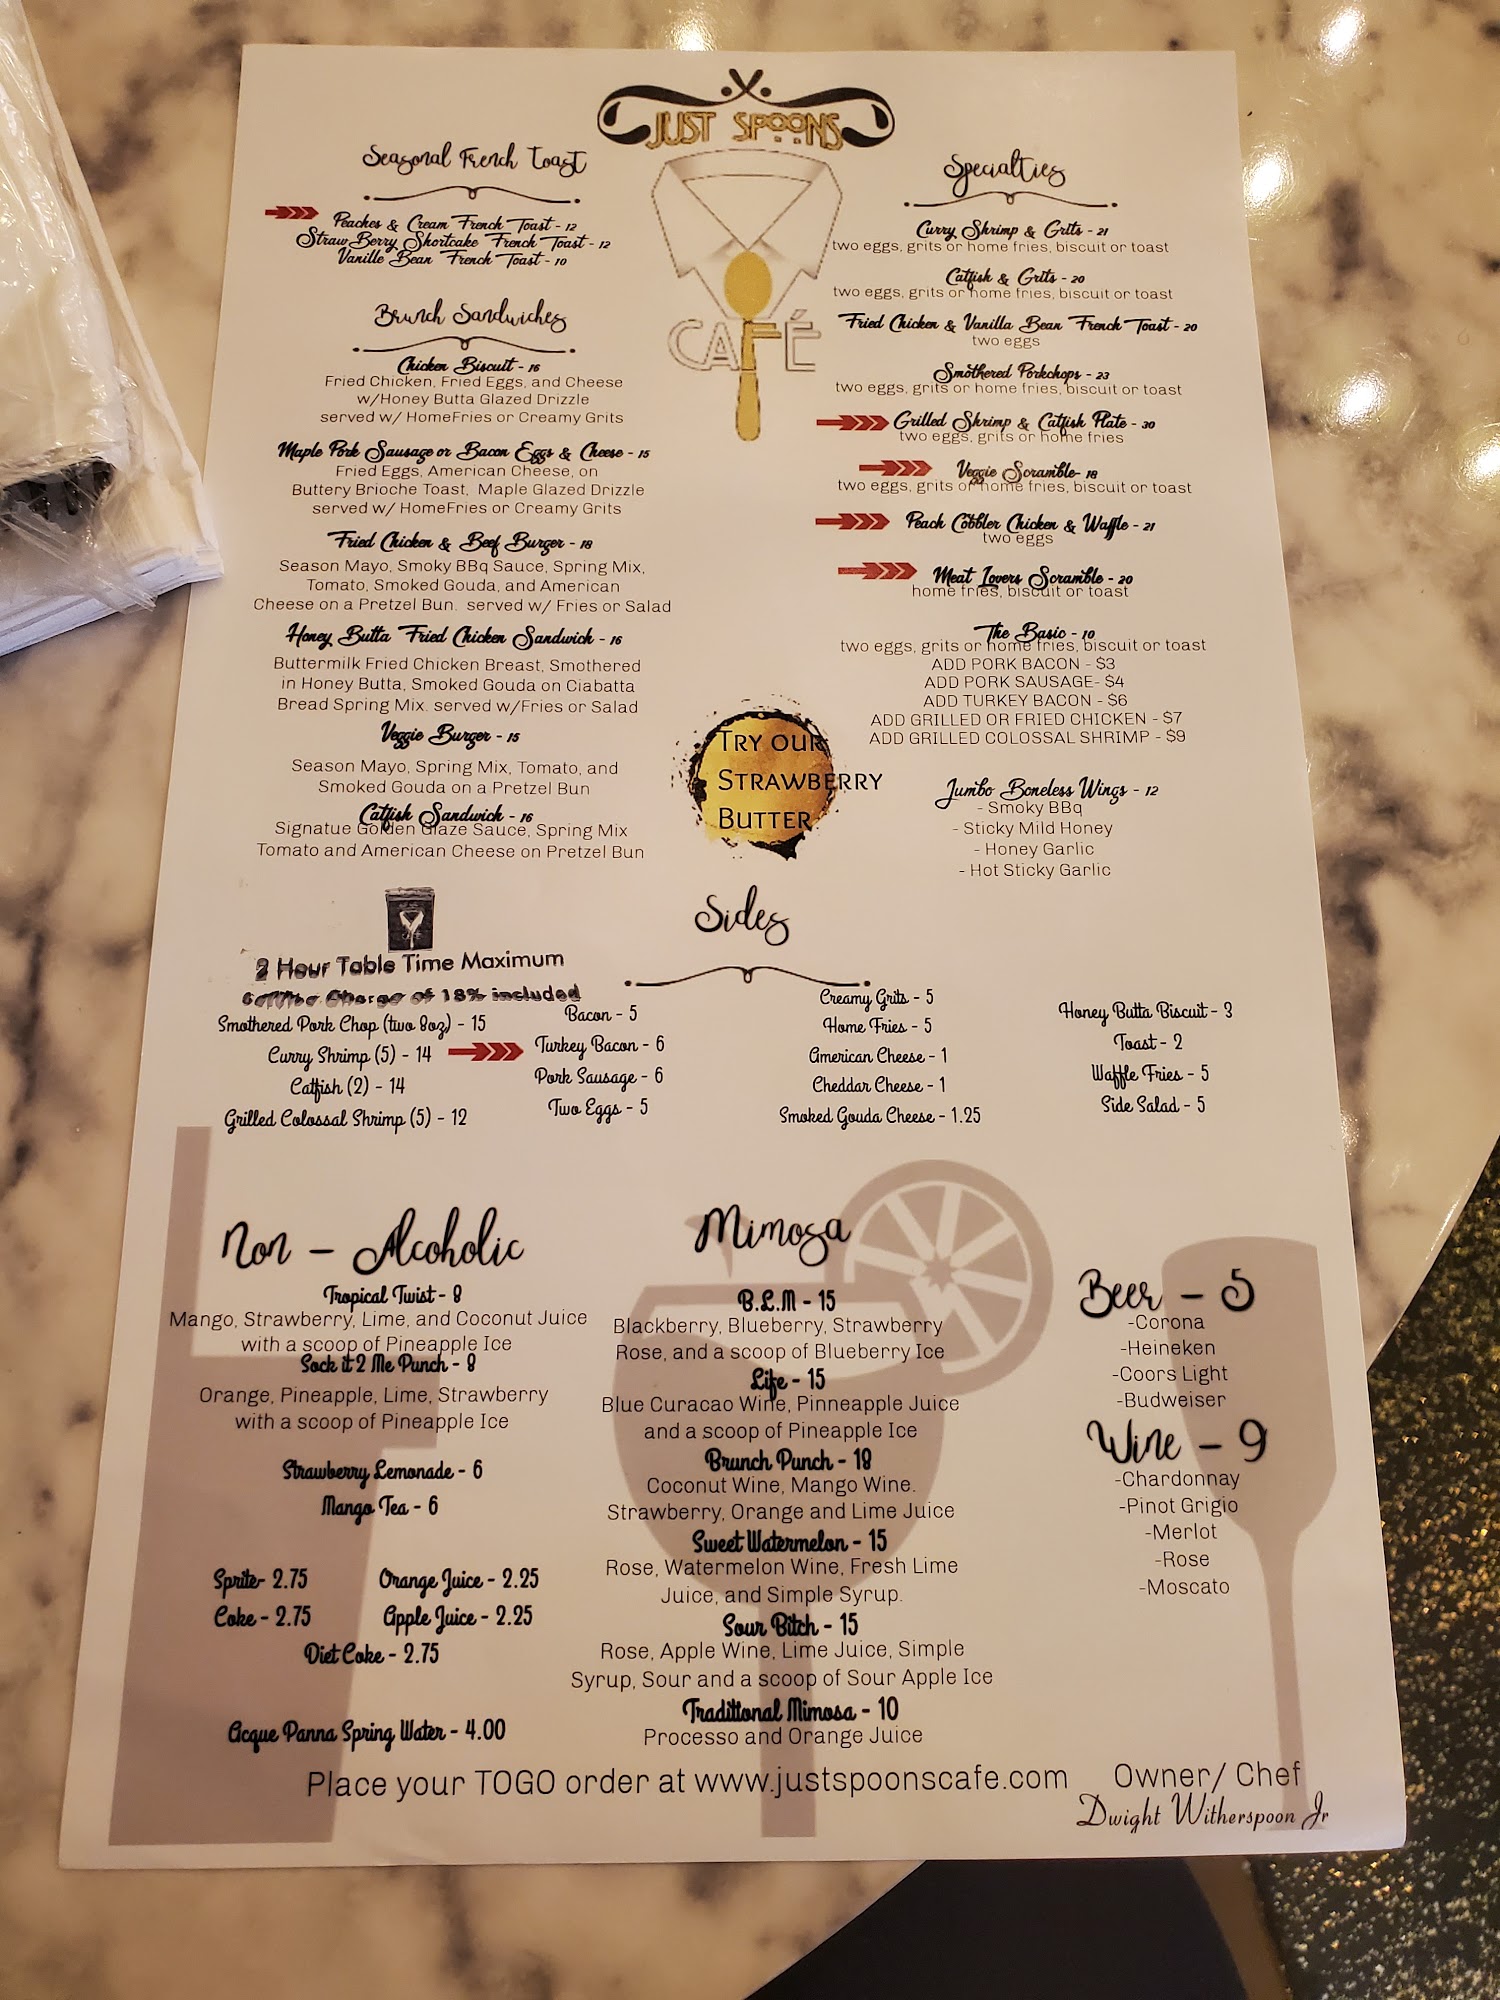 JUST SPOONS
CAFÉ
Seasonal French Toast
Peaches & Cream French Toast - 12
Straw Berry Shortcake French Toast - 12
Vanille Bean French Toast - 10
Brunch Sandwiches
Chicken Biscuit - 16
Fried Chicken, Fried Eggs, and Cheese
w/Honey Butta Glazed Drizzle
served w/ HomeFries or Creamy Grits
Maple Pork Sausage or Bacon Eggs & Cheese - 15
Fried Eggs, American Cheese, on
Buttery Brioche Toast, Maple Glazed Drizzle
served w/ HomeFries or Creamy Grits
Fried Chicken & Beef Burger - 18
Season Mayo, Smoky BBq Sauce, Spring Mix,
Tomato, Smoked Gouda, and American
Cheese on a Pretzel Bun. served w/ Fries or Salad
Honey Butta Fried Chicken Sandwich - 16
Buttermilk Fried Chicken Breast, Smothered
in Honey Butta, Smoked Gouda on Ciabatta
Bread Spring Mix. served w/Fries or Salad
Veggie Burger - 15
Season Mayo, Spring Mix, Tomato, and
Smoked Gouda on a Pretzel Bun
Catfish Sandwich - 16
Signatue Golden Glaze Sauce, Spring Mix
Tomato and American Cheese on Pretzel Bun
Specialties
Curry Shrimp & Grits - 21
two eggs, grits or home fries, biscuit or toast
Catfish & Grits - 20
two eggs, grits or home fries, biscuit or toast
Fried Chicken & Vanilla Bean French Toast - 20
two eggs
Smothered Porkchops - 23
two eggs, grits or home fries, biscuit or toast
Grilled Shrimp & Catfish Plate - 30
two eggs, grits or home fries
Veggie Scramble- 18
two eggs, grits or home fries, biscuit or toast
Peach Cobbler Chicken & Waffle - 21
two eggs
Meat Lovers Scramble - 20
home fries, biscuit or toast
The Basic - 10
two eggs, grits or home fries, biscuit or toast
ADD PORK BACON - $3
ADD PORK SAUSAGE- $4
ADD TURKEY BACON - $6
ADD GRILLED OR FRIED CHICKEN - $7
ADD GRILLED COLOSSAL SHRIMP - $9
Jumbo Boneless Wings - 12
- Smoky BBq
- Sticky Mild Honey
- Honey Garlic
- Hot Sticky Garlic
TRY OUR
STRAWBERRY
BUTTER
Sides
2 Hour Table Time Maximum
Charge of 18% included
Smothered Pork Chop (two 8oz) - 15
Curry Shrimp (5) - 14
Catfish (2) - 14
Grilled Colossal Shrimp (5) - 12
Bacon - 5
Turkey Bacon - 6
Pork Sausage - 6
Two Eggs - 5
Creamy Grits - 5
Home Fries - 5
American Cheese - 1
Cheddar Cheese - 1
Smoked Gouda Cheese - 1.25
Honey Butta Biscuit - 3
Toast - 2
Waffle Fries - 5
Side Salad - 5
Non - Alcoholic
Tropical Twist - 8
Mango, Strawberry, Lime, and Coconut Juice
with a scoop of Pineapple Ice
Sock it 2 Me Punch - 8
Orange, Pineapple, Lime, Strawberry
with a scoop of Pineapple Ice
Strawberry Lemonade - 6
Mango Tea - 6
Sprite- 2.75 Orange Juice - 2.25
Coke - 2.75 Apple Juice - 2.25
Diet Coke - 2.75
Acque Panna Spring Water - 4.00
Mimosa
B.L.M - 15
Blackberry, Blueberry, Strawberry
Rose, and a scoop of Blueberry Ice
Life - 15
Blue Curacao Wine, Pinneapple Juice
and a scoop of Pineapple Ice
Brunch Punch - 18
Coconut Wine, Mango Wine.
Strawberry, Orange and Lime Juice
Sweet Watermelon - 15
Rose, Watermelon Wine, Fresh Lime
Juice, and Simple Syrup.
Sour Bitch - 15
Rose, Apple Wine, Lime Juice, Simple
Syrup, Sour and a scoop of Sour Apple Ice
Traditional Mimosa - 10
Processo and Orange Juice
Beer - 5
-Corona
-Heineken
-Coors Light
-Budweiser
Wine - 9
-Chardonnay
-Pinot Grigio
-Merlot
-Rose
-Moscato
Place your TOGO order at www.justspoonscafe.com
Owner/ Chef
Dwight Witherspoon Jr